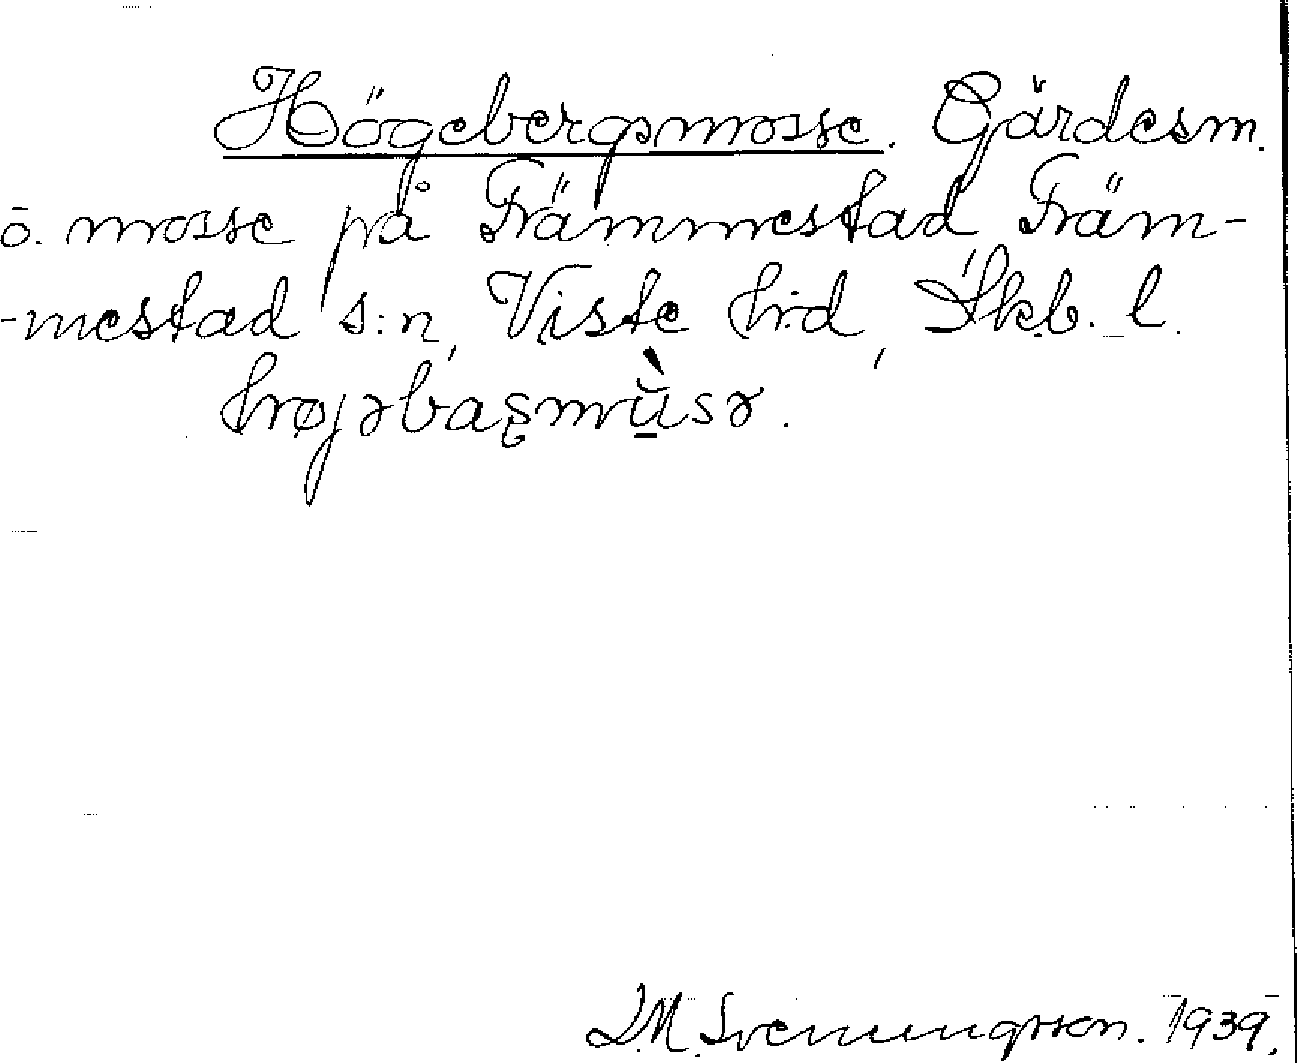 Högebergsmosse. Gärdesm.
o. mosse på Främmestad, Främ-
-mestad s:n, Viste hd, Skb. l.
højəbaşmùsə.
I.M. Svenungsson. 1939.